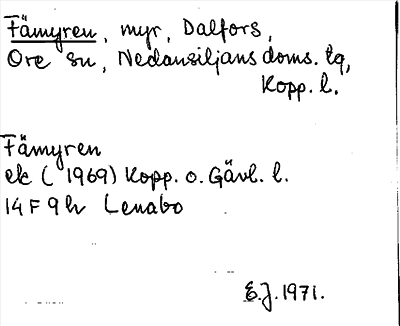 Fämyren, myr, Dalfors,
Ore sn, Nedansiljans doms. tg,
Kopp. l.
Fämyren
ek (1969) Kopp. o. Gävl. l.
14 F 9 h Lenabo
E.J. 1971.